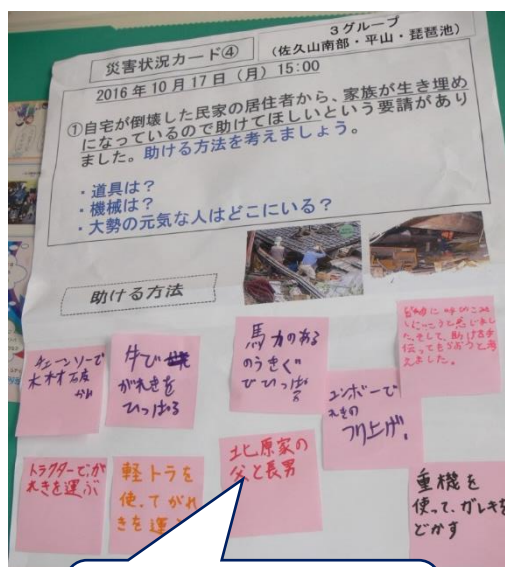 災害状況カード④
3グループ
(佐久山南部・平山・琵琶池)
2016年10月17日(月)15:00
①自宅が倒壊した民家の居住者から、家族が生き埋め
になっているので助けてほしいという要請があり
ました。助ける方法を考えましょう。
・道具は?
・機械は?
・大勢の元気な人はどこにいる?
助ける方法
チェーンソーで
木材破
牛で
がれきを
ひっぱる
馬力のある
のうきぐ
でひっぱる
ユンボーで
れきの
つり上げ!
に呼びこみ
にいこうと思いまし
た。そして、助ける手
伝ってもらおうと考
えました。
トラクターでが
れきを運ぶ
軽トラを
使ってがれ
きを運
北原家の
父と長男
重機を
使って、ガレキを
どかす